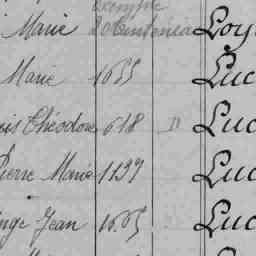 exempté
Marie Loy
Marie 1655 Luc
uis Théodore 618 " Luc
Pierre Marie 1137 Luc
nge Jean 1605 Luc